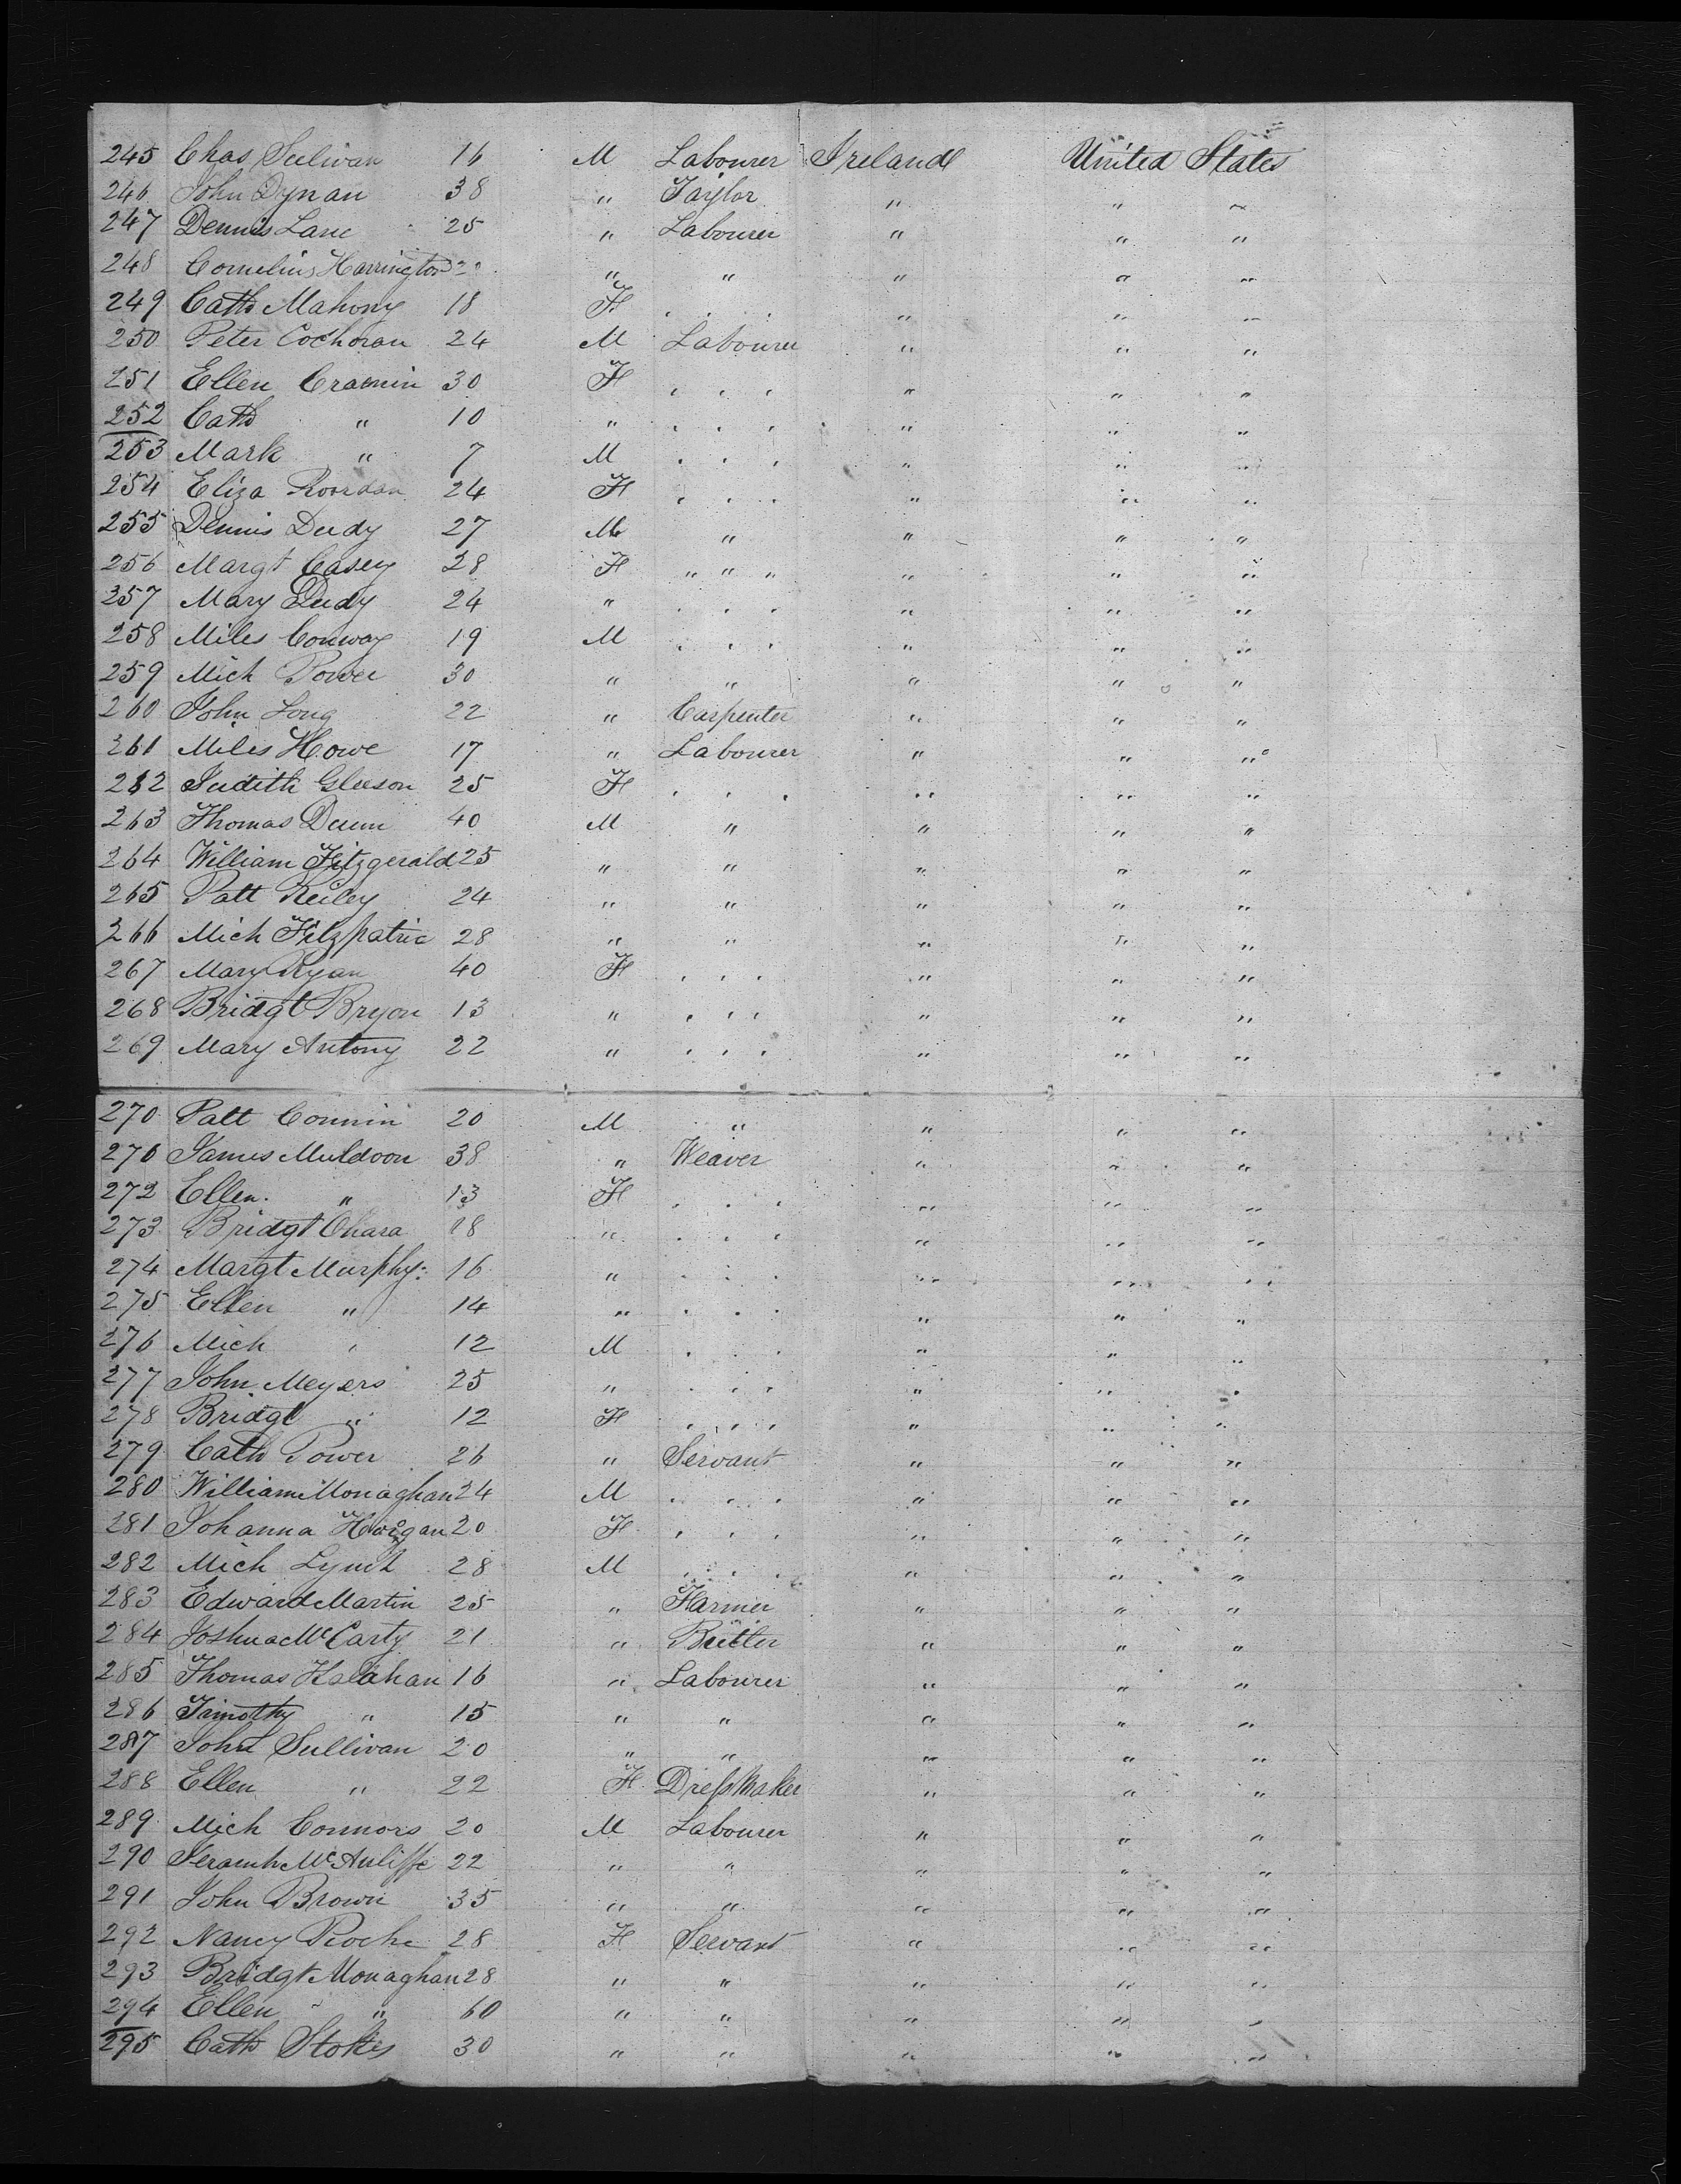 245 Chas Sulivan 16 M Labourer Ireland United States
246 John Dynan 38 " Taylor " " "
247 Dennis Lane 25 " Labourer " " "
248 Cornelius Harrington " " " " "
249 Cath Mahony 18 F " " "
250 Peter Cochoran 24 M Labourer " " "
251 Ellen Cramin 30 F , , , " " "
252 Cath " 10 " , , , " " "
253 Mark " 7 M , , , " " "
254 Eliza Roordan 24 F , , , " " "
255 Dennis Dudy 27 M " " " "
256 Margt Casey 28 F " " " " " "
257 Mary Dudy 24 " , , , " " "
258 Miles Conway 19 M , , , " " "
259 Mich Power 30 " " " " "
260 John Long 22 " Carpenter " " "
261 Miles Howe 17 " Labourer " " "
262 Judith Gleeson 25 F , , , " " "
263 Thomas Dunn 40 M " " " "
264 William Fitzgerald 25 " " " " "
265 Patt Reiley 24 " " " " "
266 Mich Fitzpatric 28 " " " " "
267 Mary Ryan 40 F , , , " " "
268 Bridgt Bryon 13 " , , , " " "
269 Mary Antony 22 " , , , " " "
270 Patt Connin 20 M " " " "
271 James Muldoon 38 " Weaver " " "
272 Ellen " 13 F , , , " " "
273 Bridgt Ohara 18 " , , , " " "
274 Margt Murphy 16 " , , , " " "
275 Ellen " 14 " , , , " " "
276 Mich " 12 M , , , " " "
277 John Meyers 25 " , , , " " "
278 Bridgt " 12 F , , , " " "
279 Cath Power 26 " Servant " " "
280 William Monaghan 24 M , , , " " "
281 Johanna Horgan 20 F , , , " " "
282 Mich Lynch 28 M , , , " " "
283 Edward Martin 25 " Farmer " " "
284 Joshua McCarty 21 " Butler " " "
285 Thomas Halahan 16 " Labourer " " "
286 Timothy " 15 " " " " "
287 John Sullivan 20 " " " " "
288 Ellen " 22 F Dress Maker " " "
289 Mich Connors 20 M Labourer " " "
290 McAuliffe 22 " " " " "
291 John Brown 35 " " " " "
292 Nancy Roche 28 F Servant " " "
293 Bridgt Monaghan 28 " " " " "
294 Ellen " 60 " " " " "
295 Cath Stokes 30 " " " " "